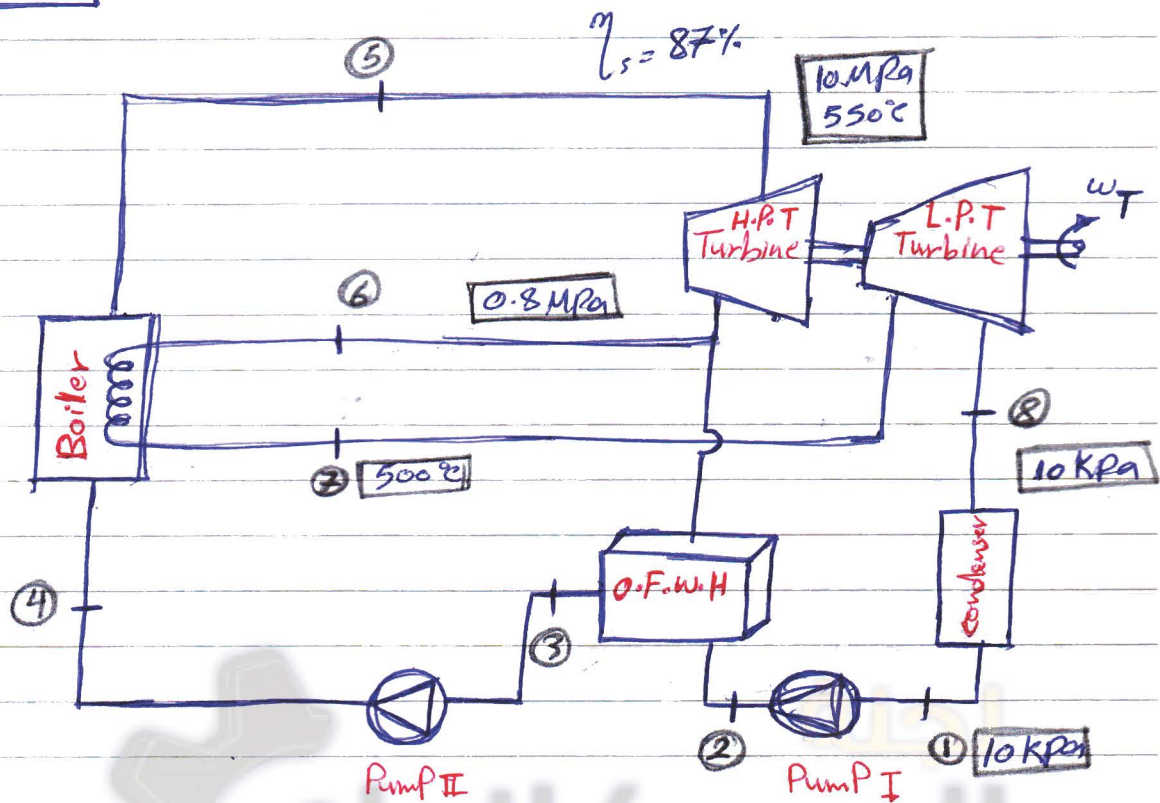 ηs = 87%
⑤
10 MPa
550°C
H.P.T
Turbine
L.P.T
Turbine
ωT
⑥
0.8 MPa
Boiler
⑦ 500°C
⑧
10 KPa
O.F.W.H
Condenser
④
③
②
① 10 KPa
PumP II
PumP I